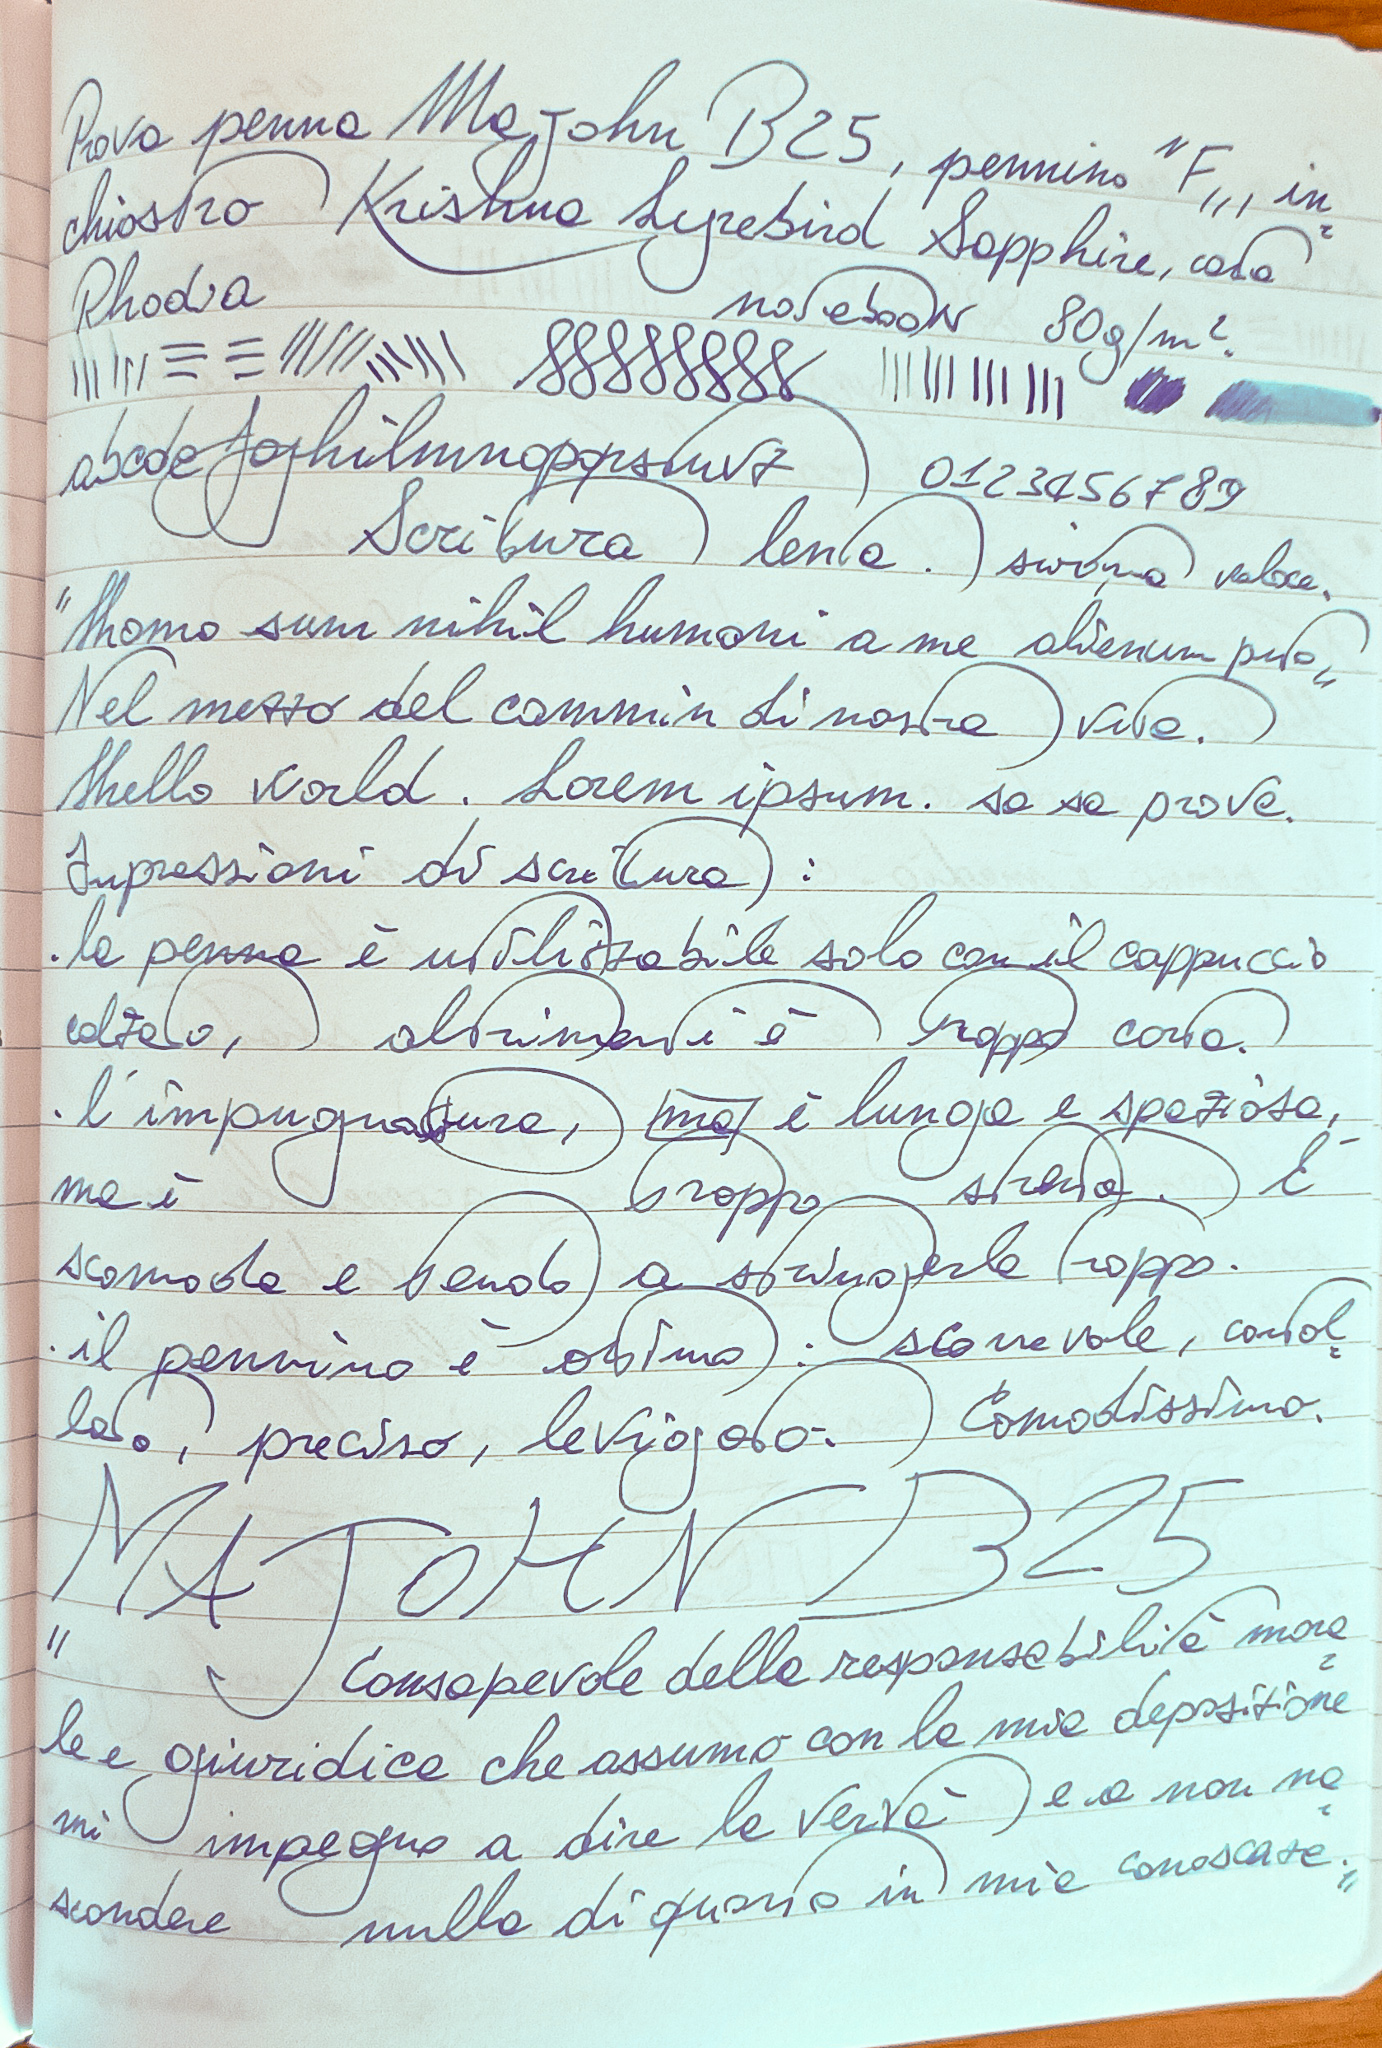 Prova penna Majohn B25, pennino "F", in-
chiostro Krishna Lyrebird Sapphire, carta
Rhodia notebook 80g/m².
abcdefghilmnopqrstuvz 0123456789
Scrittura lenta. scrittura veloce.
"Homo sum nihil humani a me alienum puto"
Nel mezzo del cammin di nostra vita.
Hello world. Lorem ipsum. sa sa prova.
Impressioni di scrittura:
. la penna è utilizzabile solo con il cappuccio
calzato, altrimenti è troppo corta.
. l'impugnatura, ma è lunga e spaziosa,
ma è troppo stretta. È
scomoda e tendo a stringerla troppo.
. il pennino è ottimo: scorrevole, control-
lato, preciso, levigato. Comodissimo.
MAJOHN B25
"Consapevole della responsabilità mora-
le e giuridica che assumo con la mia deposizione
mi impegno a dire la verità e a non na-
scondere nulla di quanto in mia conoscenza."